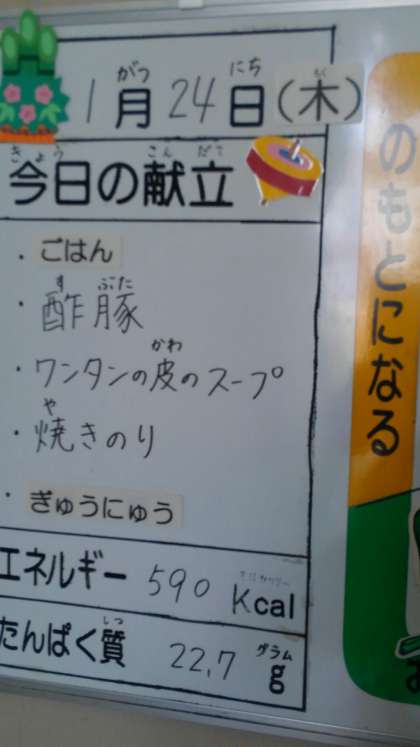 1月24日(木)
今日の献立
・ごはん
・酢豚
・ワンタンの皮のスープ
・焼きのり
・ぎゅうにゅう
エネルギー 590 Kcal
たんぱく質 22.7 g
のもとになる